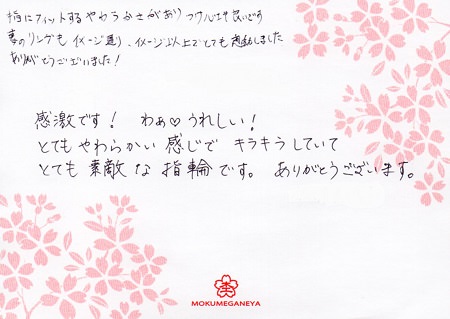 指にフィットするやわらかさがあり つけ心地も良いです
妻のリングもイメージ通り、イメージ以上でとても感動しました
ありがとうございました!
感激です! わぁ♡うれしい!
とてもやわらかい感じで キラキラしていて
とても素敵な指輪です。 ありがとうございます。
MOKUMEGANEYA